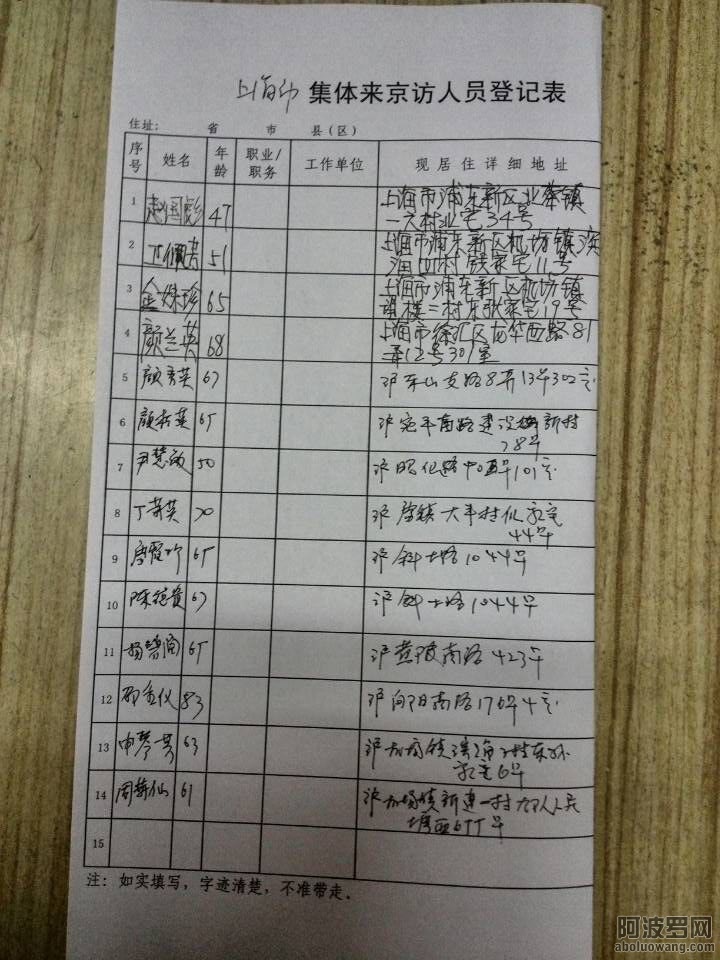 上海市 集体来京访人员登记表
住址： 省 市 县(区)
序号 姓名 年龄 职业/职务 工作单位 现居住详细地址
1 47 上海市浦东新区北蔡镇
一六村业宅34号
2 51 上海市浦东新区机场镇滨
海四村 宅11号
3 65 上海市浦东新区机场镇
三村东张家宅19号
4 颜兰英 68 上海市徐汇区龙华西路81
弄12号301室
5 颜秀英 67 沪东山支路8弄13号302室
6 65 沪宛平南路建设新村
78号
7 尹慧敏 50 沪昭化路 101室
8 丁菊英 70 沪唐镇大丰村 家宅
44号
9 65 沪斜土路1044号
10 陈德贵 67 沪斜土路1044号
11 杨 65 沪黄陂南路423号
12 83 沪向阳南路176号4室
13 申琴芳 63 沪机场镇滨海 村东
家宅6号
14 周 仙 61 沪机场镇新建一村 人民
塘西655号
15
注：如实填写，字迹清楚，不准带走．
阿波罗网
aboluowang.com